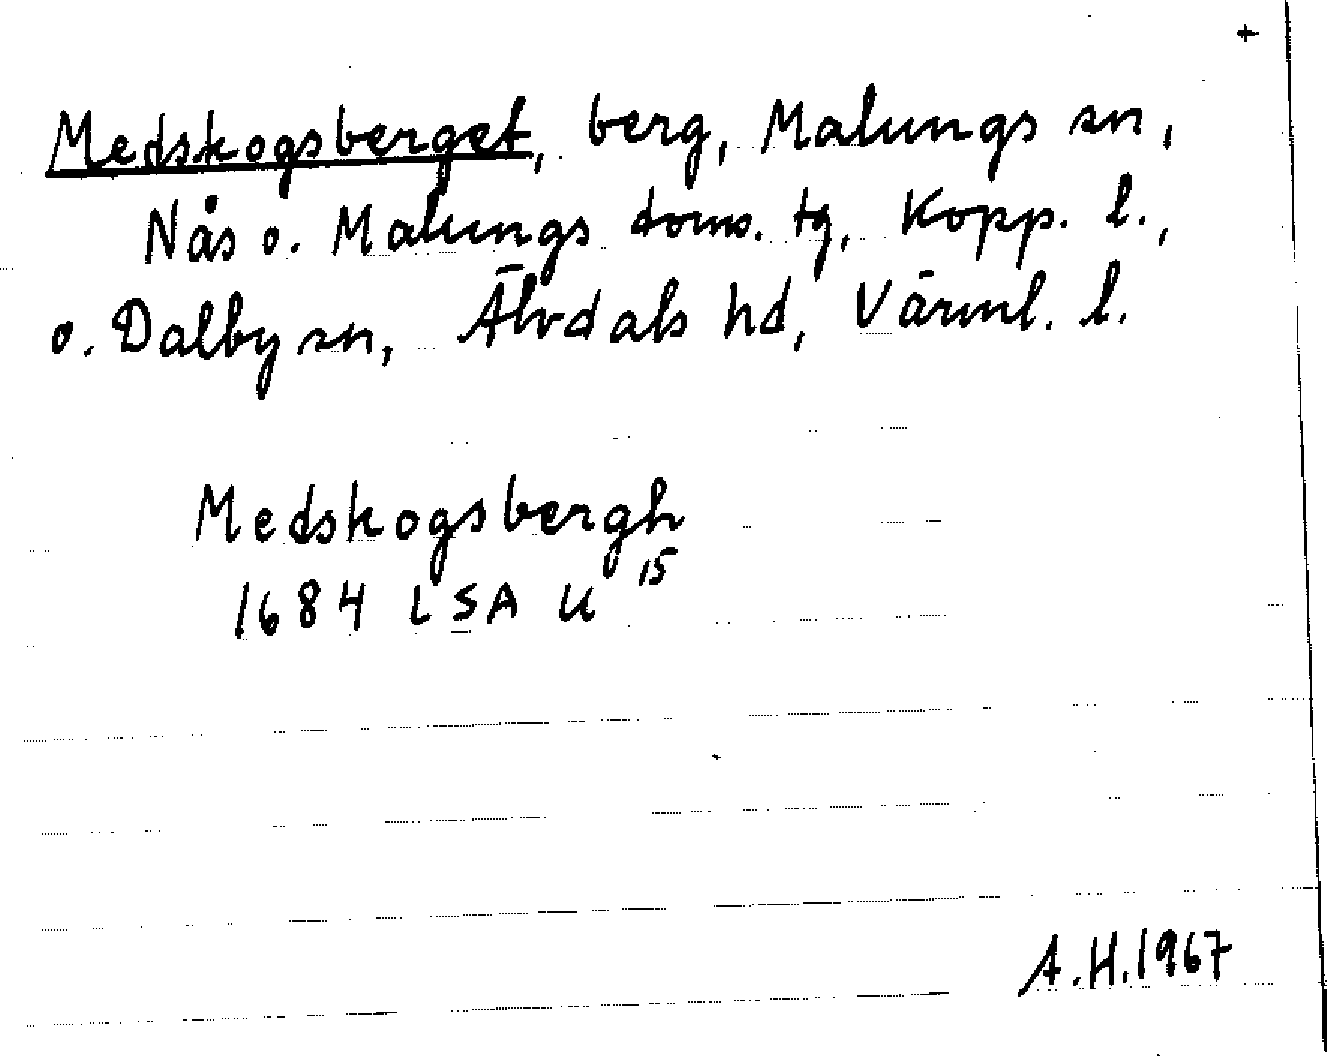 +
Medskogsberget, berg, Malungs sn,
Nås o. Malungs doms. tg, Kopp. l.,
o. Dalby sn, Älvdals hd, Värml. l.
Medskogsbergh
1684 LSA U 15
A.H.1967